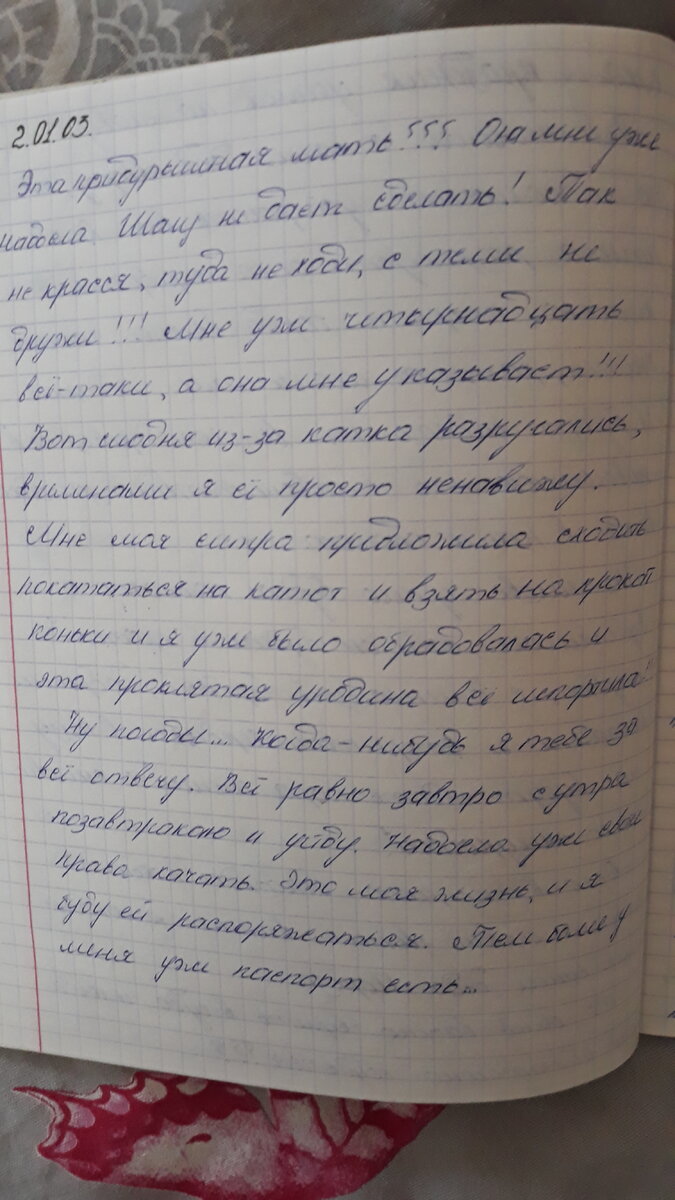 2.01.03.
Эта придурышная мать!!! Она мне уже
надоела Шагу не даёт сделать! Так
не красся, туда не ходи, с теми не
дружи!!! Мне уже четырнадцать
всё-таки, а она мне указывает!!!
Вот сегодня из-за катка разругались,
временами я её просто ненавижу.
Мне моя сестра предложила сходить
покататься на каток и взять на прокат
коньки и я уже было обрадовалась и
эта проклятая уродина всё испортила!!
Ну погоди... Когда-нибудь я тебе за
всё отвечу. Всё равно завтро с утра
позавтракаю и уйду. Надоела уже свои
права качать. Это моя жизнь, и я
буду ей распоряжаться. Тем более у
меня уже паспорт есть...